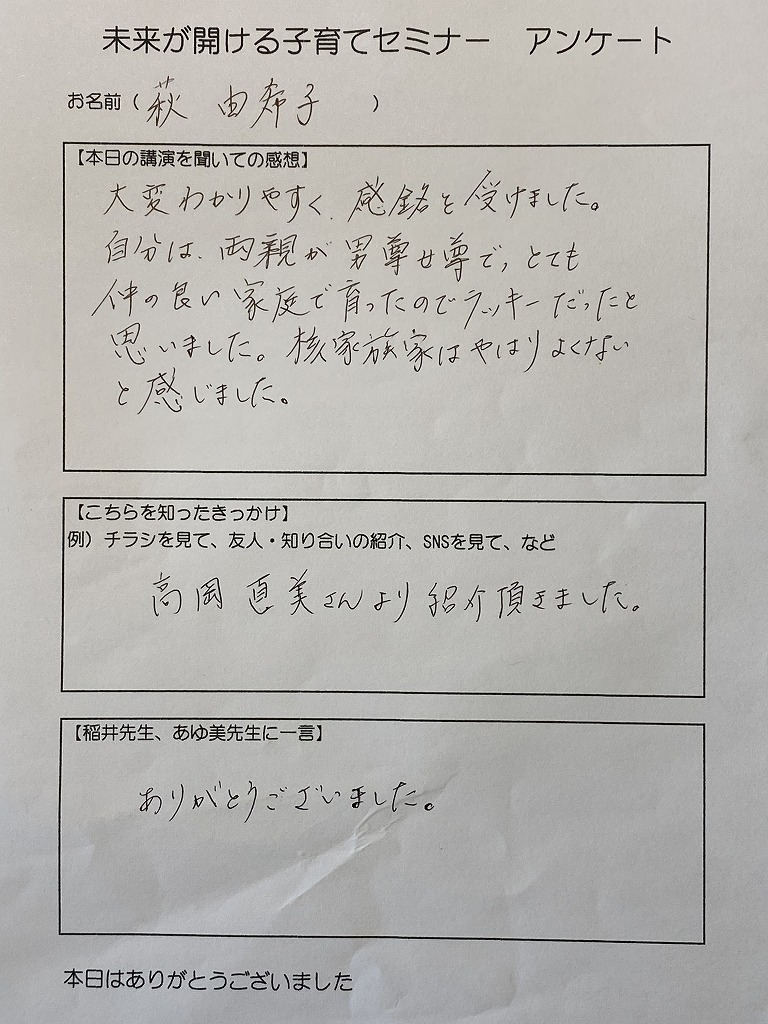 未来が開ける子育てセミナー　アンケート
お名前（萩 由希子　）
【本日の講演を聞いての感想】
大変わかりやすく、感銘を受けました。
自分は、両親が男尊女尊で、とても
仲の良い家庭で育ったのでラッキーだったと
思いました。核家族家はやはりよくない
と感じました。
【こちらを知ったきっかけ】
例）チラシを見て、友人・知り合いの紹介、SNSを見て、など
高岡 直美さんより紹介頂きました。
【稲井先生、あゆ美先生に一言】
ありがとうございました。
本日はありがとうございました